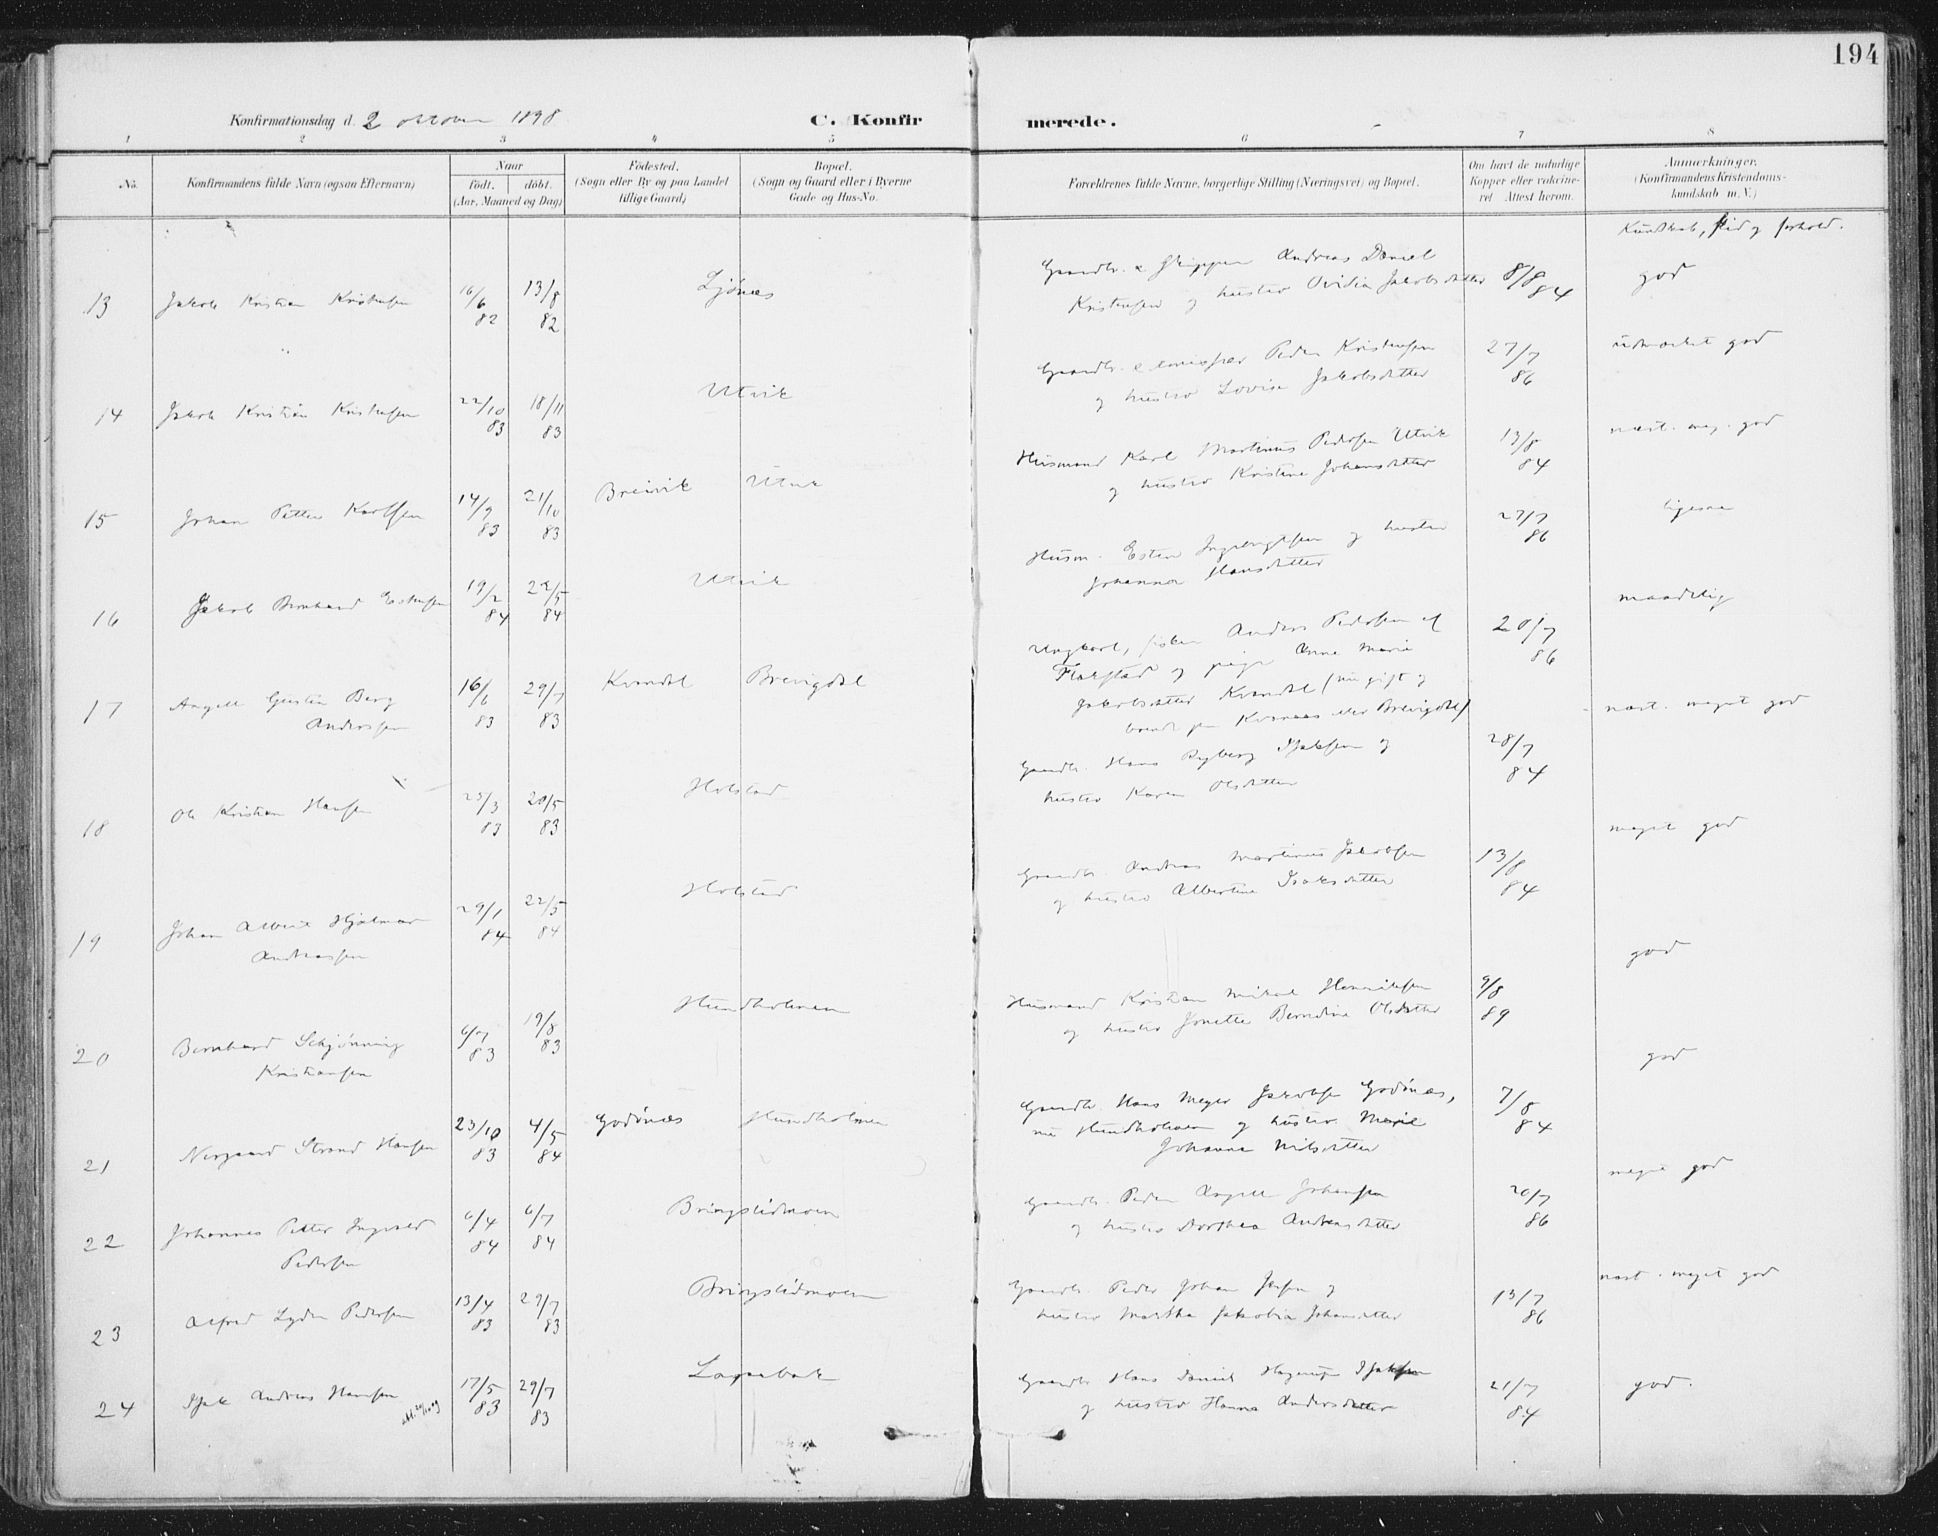 194
Konfirmationsdag d. 2 oktober 1898
C. Konfirmerede.
1 2 3 4 5 6 7 8
No.
Konfirmandens fulde Navn (ogsaa Efternavn)
Naar
födt. döbt.
(Aar, Maaned og Dag)
Födested.
(Sogn eller By og paa Landet
tillige Gaard)
Bopæl.
(Sogn og Gaard eller i Byerne
Gade og Hus-No.
Forældrenes fulde Navne, borgerlige Stilling (Næringsvei) og Bopæl.
Om havt de naturlige
Kopper eller vakcine-
ret Attest herom.
Anmærkninger.
(Konfirmandens Kristendoms-
kundskab m. V.)
Kundskab, flid og forhold.
13 Jakob Kristian Kristensen 16/6 82 13/8 82 Ljønes
Gaardbr. & skipper Andreas Daniel
Kristensen og hustro Ovidia Jakobsdatter 8/8 84 god
14 Jakob Kristian Kristensen 22/10 83 18/11 83 Utvik
Gaardbr. Peder Kristensen
og hustro Lovise Jakobsdatter 27/7 86 udmærket god
15 Johan Petter Karlsen 14/9 83 21/10 83 Breivik Utvik
Husmand Karl Martinus Pedersen Utvik
og hustro Kristine Johansdatter 13/8 84 næst. meg. god
16 Jakob Bernhard Estensen 19/2 84 22/5 84 Utvik
Husm. Esten Ingebrigtsen og hustro
Johanna Hansdatter 27/7 86 ligesaa
17 Angell Gustin Berg
Anderssen 16/6 83 29/7 83 Kvandal Breivigdal
Ungkarl, fisker Anders Pedersen af
Flakstad og pige Anne Marie
Jakobsdatter Kvandal (nu gift og
boende paa Kvænaas eller Breivigdal) 20/7 86 maadelig
18 Ole Kristian Hansen 25/3 83 20/5 83 Holstad
Gaardbr. Hans Ryberg Isaksen og
hustro Karen Olsdatter 28/7 84 næst. meget god
19 Johan Albert Hjalmar
Andreassen 29/1 84 22/5 84 Holstad
Gaardbr. Andreas Martinus Jakobsen
og hustro Albertine Isaksdatter 13/8 84 meget god
20 Bernhard Schjønning
Kristiansen 6/7 83 19/8 83 Hundholmen
Husmand Kristian Mikal Henriksen
og hustro Jonette Berndine Olsdatter 9/8 89 god
21 Norgaard Strand Hansen 23/10 83 4/5 84 Godønæs Hundholmen
Gaardbr. Hans Meyer Jakobsen Godønæs,
nu Hundholmen og hustro Marie
Johanna Nilsdatter 7/8 84 god
22 Johannes Petter Ingvald
Pedersen 6/4 84 6/7 84 Bringslidmoen
Gaardbr. Peder Angell Johansen
og hustro Dorthea Andreasdatter 20/7 86 meget god
23 Alfred Lyder Pedersen 13/4 83 29/7 83 Bringslidmoen
Gaardbr. Peder Johan Jensen og
hustro Martha Jakobia Johansdatter 13/7 86 næst. meget god
24 Isak Andreas Hansen 17/5 83 29/7 83
Gaardbr. Hans Daniel Hagerup Isaksen
og hustro Hanna Andersdatter 21/7 84 god.